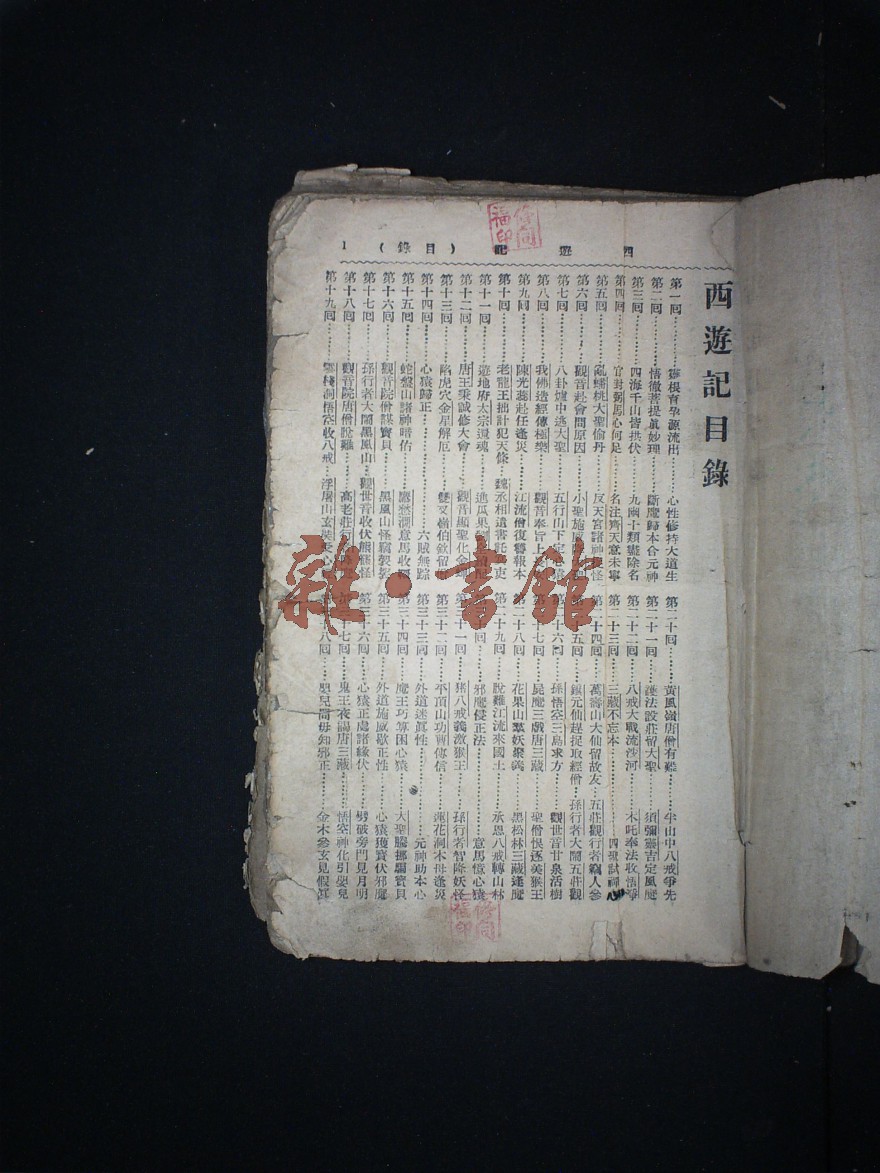 西遊記（目錄）　1
西遊記目錄
第一回………靈根育孕源流出　心性修持大道生
第二回………悟徹菩提眞妙理　斷魔歸本合元神
第三回………四海千山皆拱伏　九幽十類盡除名
第四回………官封弼馬心何足　名注齊天意未寧
第五回………亂蟠桃大聖偷丹　反天宮諸神　怪
第六回………觀音赴會問原因　小聖施威
第七回………八卦爐中逃大聖　五行山下定心
第八回………我佛造經傳極樂　觀音奉旨上
第九回………陳光蕊赴任逢災　江流僧復讐報本
第十回………老龍王拙計犯天條　魏丞相遺書託　吏
第十一回………遊地府太宗還魂　進瓜果
第十二回………唐王秉誠修大會　觀音顯聖化金
第十三回………陷虎穴金星解厄　雙叉嶺伯欽留
第十四回………心猿歸正　六賊無踪
第十五回………蛇盤山諸神暗佑　鷹愁澗意馬收
第十六回………觀音院僧謀寶貝　黑風山怪竊袈裟
第十七回………孫行者大鬧黑風山　觀世音收伏熊羆怪
第十八回………觀音院唐僧脫難　高老莊行
第十九回………雲棧洞悟空收八戒　浮屠山玄奘受心
第二十回………黃風嶺唐僧有難　半山中八戒爭先
第二十一回………護法設莊留大聖　須彌靈吉定風魔
第二十二回………八戒大戰流沙河　木吒奉法收悟淨
第二十三回………三藏不忘本　四聖試禪心
第二十四回………萬壽山大仙留故友　五莊觀行者竊人參
第二十五回………鎮元仙趕捉取經僧　孫行者大鬧五莊觀
第二十六回………孫悟空三島求方　觀世音甘泉活樹
第二十七回………屍魔三戲唐三藏　聖僧恨逐美猴王
第二十八回………花果山羣妖聚義　黑松林三藏逢魔
第二十九回………脫難江流來國土　承恩八戒轉山林
第三十回………邪魔侵正法　意馬憶心猿
第三十一回………猪八戒義激猴王　孫行者智降妖怪
第三十二回………平頂山功曹傳信　蓮花洞木母逢災
第三十三回………外道迷眞性　元神助本心
第三十四回………魔王巧算困心猿　大聖騰挪騙寶貝
第三十五回………外道施威欺正性　心猿獲寶伏邪魔
第三十六回………心猿正處諸緣伏　劈破旁門見月明
第三十七回………鬼王夜謁唐三藏　悟空神化引嬰兒
第三十八回………嬰兒問母知邪正　金木參玄見假眞
雜·書館